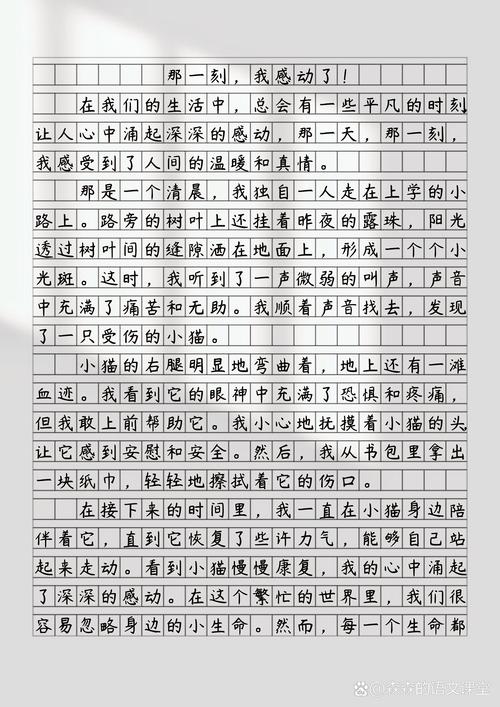 那一刻，我感动了！
在我们的生活中，总会有一些平凡的时刻
让人心中涌起深深的感动，那一天，那一刻，
我感受到了人间的温暖和真情。
那是一个清晨，我独自一人走在上学的小
路上。路旁的树叶上还挂着昨夜的露珠，阳光
透过树叶间的缝隙洒在地面上，形成一个个小
光斑。这时，我听到了一声微弱的叫声，声音
中充满了痛苦和无助。我顺着声音找去，发现
了一只受伤的小猫。
小猫的右腿明显地弯曲着，地上还有一滩
血迹。我看到它的眼神中充满了恐惧和疼痛，
但我敢上前帮助它。我小心地抚摸着小猫的头
让它感到安慰和安全。然后，我从书包里拿出
一块纸巾，轻轻地擦拭着它的伤口。
在接下来的时间里，我一直在小猫身边陪
伴着它，直到它恢复了些许力气，能够自己站
起来走动。看到小猫慢慢康复，我的心中涌起
了深深的感动。在这个繁忙的世界里，我们很
容易忽略身边的小生命。然而，每一个生命都
@森森的语文课堂